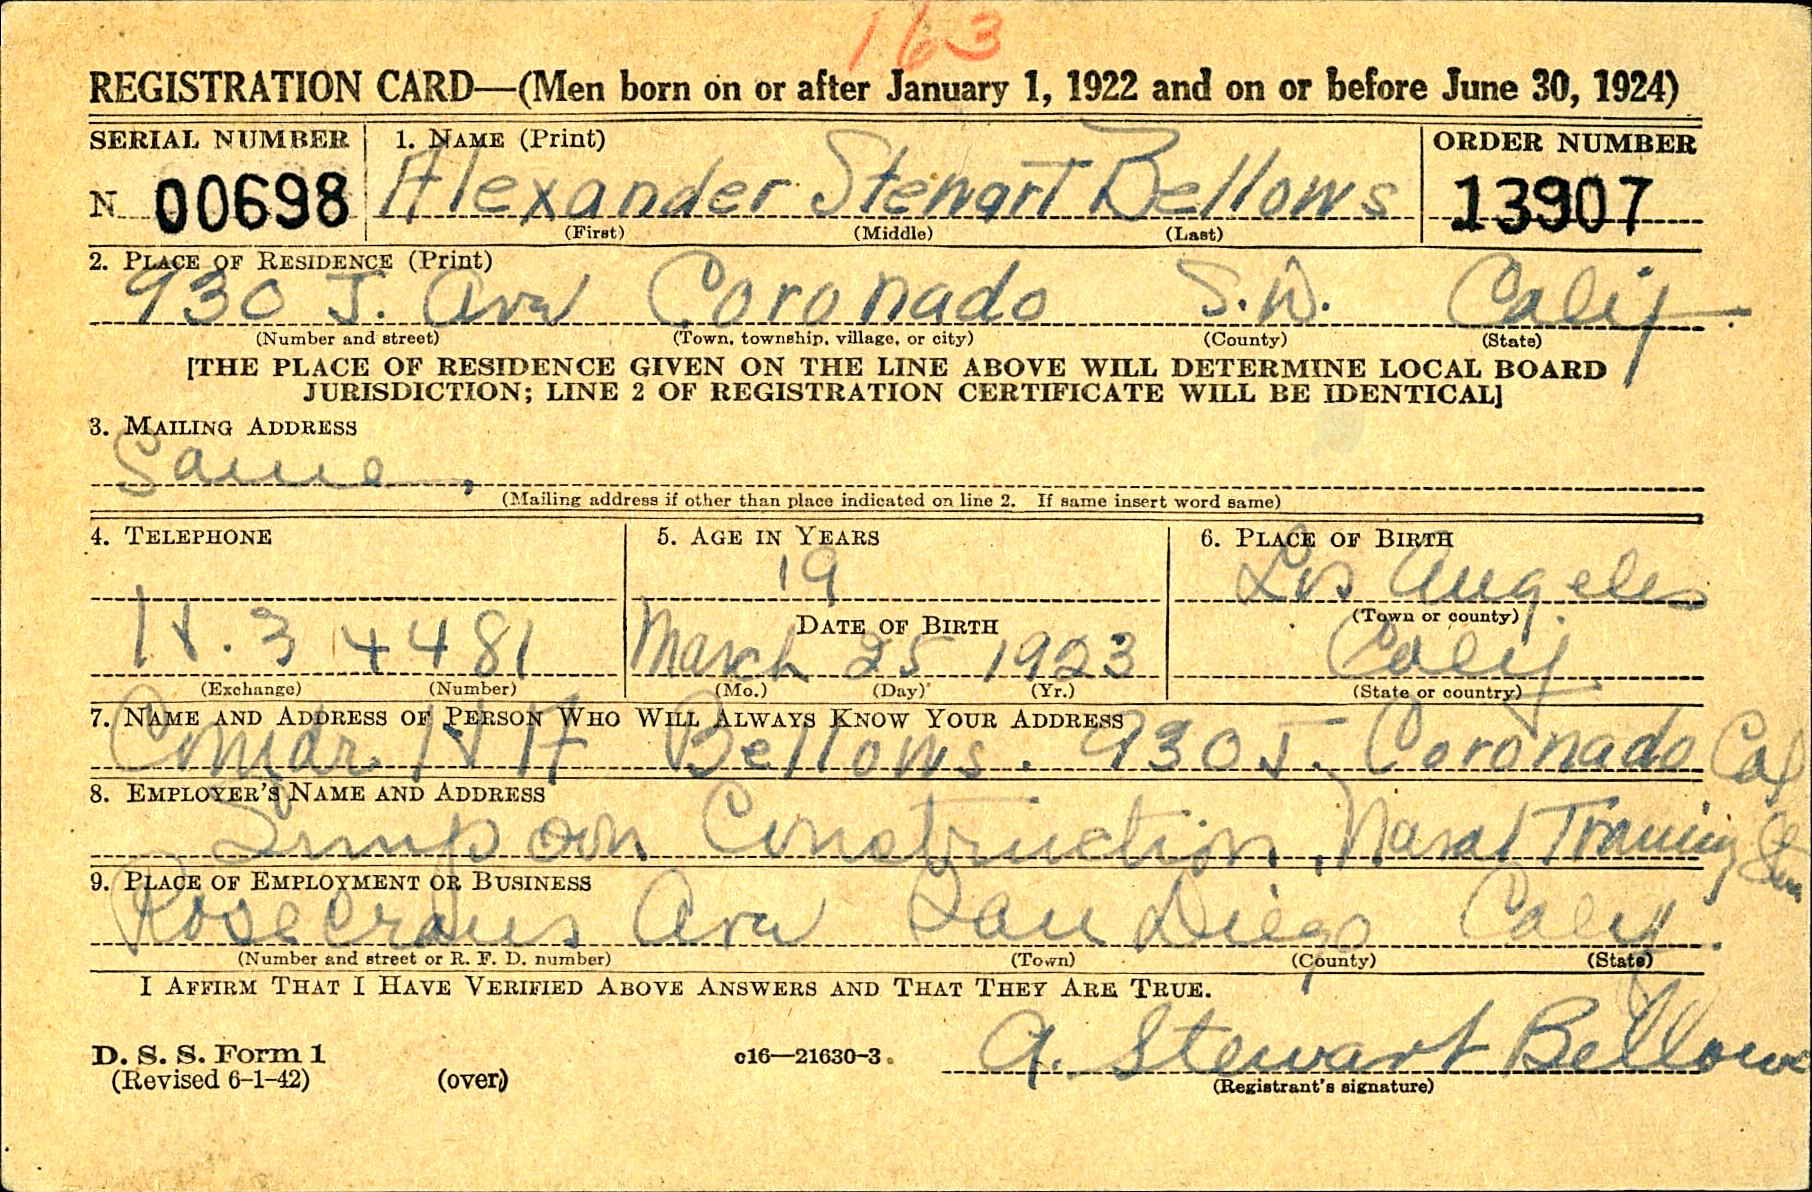 163
REGISTRATION CARD—(Men born on or after January 1, 1922 and on or before June 30, 1924)
SERIAL NUMBER 1. NAME (Print) ORDER NUMBER
N 00698 Alexander Stewart Bellows 13907
(First) (Middle) (Last)
2. PLACE OF RESIDENCE (Print)
930 J. Ave Coronado S.D. Calif
(Number and street) (Town, township, village, or city) (County) (State)
[THE PLACE OF RESIDENCE GIVEN ON THE LINE ABOVE WILL DETERMINE LOCAL BOARD
JURISDICTION; LINE 2 OF REGISTRATION CERTIFICATE WILL BE IDENTICAL]
3. MAILING ADDRESS
Same,
(Mailing address if other than place indicated on line 2. If same insert word same)
4. TELEPHONE 5. AGE IN YEARS 6. PLACE OF BIRTH
19 Los Angeles
DATE OF BIRTH (Town or county)
H. 3 4481 March 25 1923 Calif.
(Exchange) (Number) (Mo.) (Day) (Yr.) (State or country)
7. NAME AND ADDRESS OF PERSON WHO WILL ALWAYS KNOW YOUR ADDRESS
Comdr. H A Bellows. 930 J. Coronado Cal
8. EMPLOYER'S NAME AND ADDRESS
Simpson Construction, Naval Training
9. PLACE OF EMPLOYMENT OR BUSINESS
Rosecrans Ave San Diego Calif.
(Number and street or R. F. D. number) (Town) (County) (State)
I AFFIRM THAT I HAVE VERIFIED ABOVE ANSWERS AND THAT THEY ARE TRUE.
D. S. S. Form 1
(Revised 6-1-42) (over) c16—21630-3 A. Stewart Bellows
(Registrant's signature)